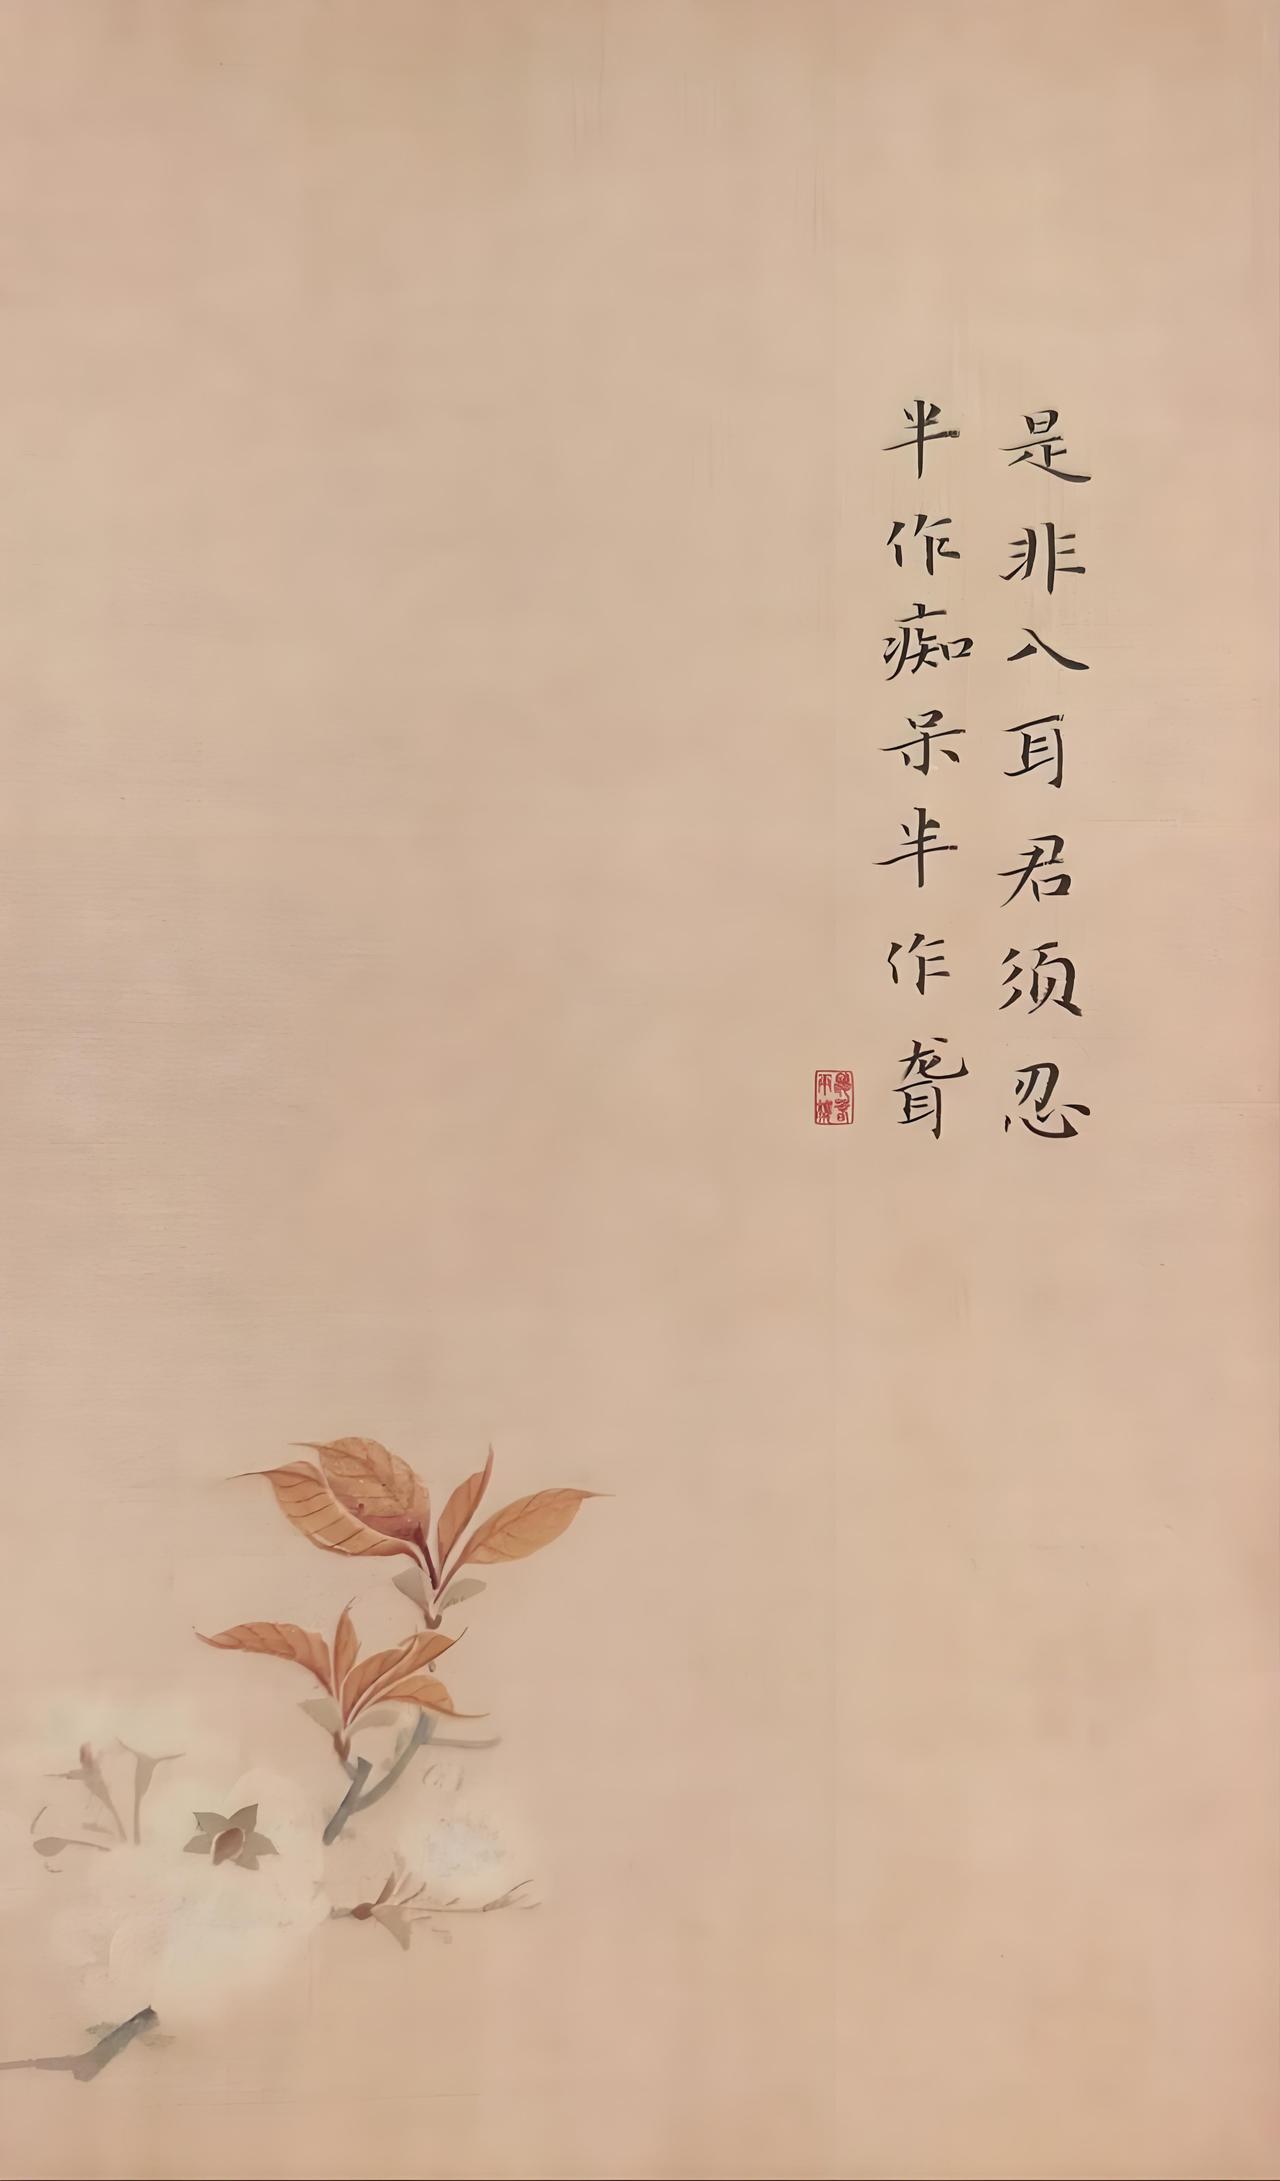 是非入耳君须忍
半作痴呆半作聋